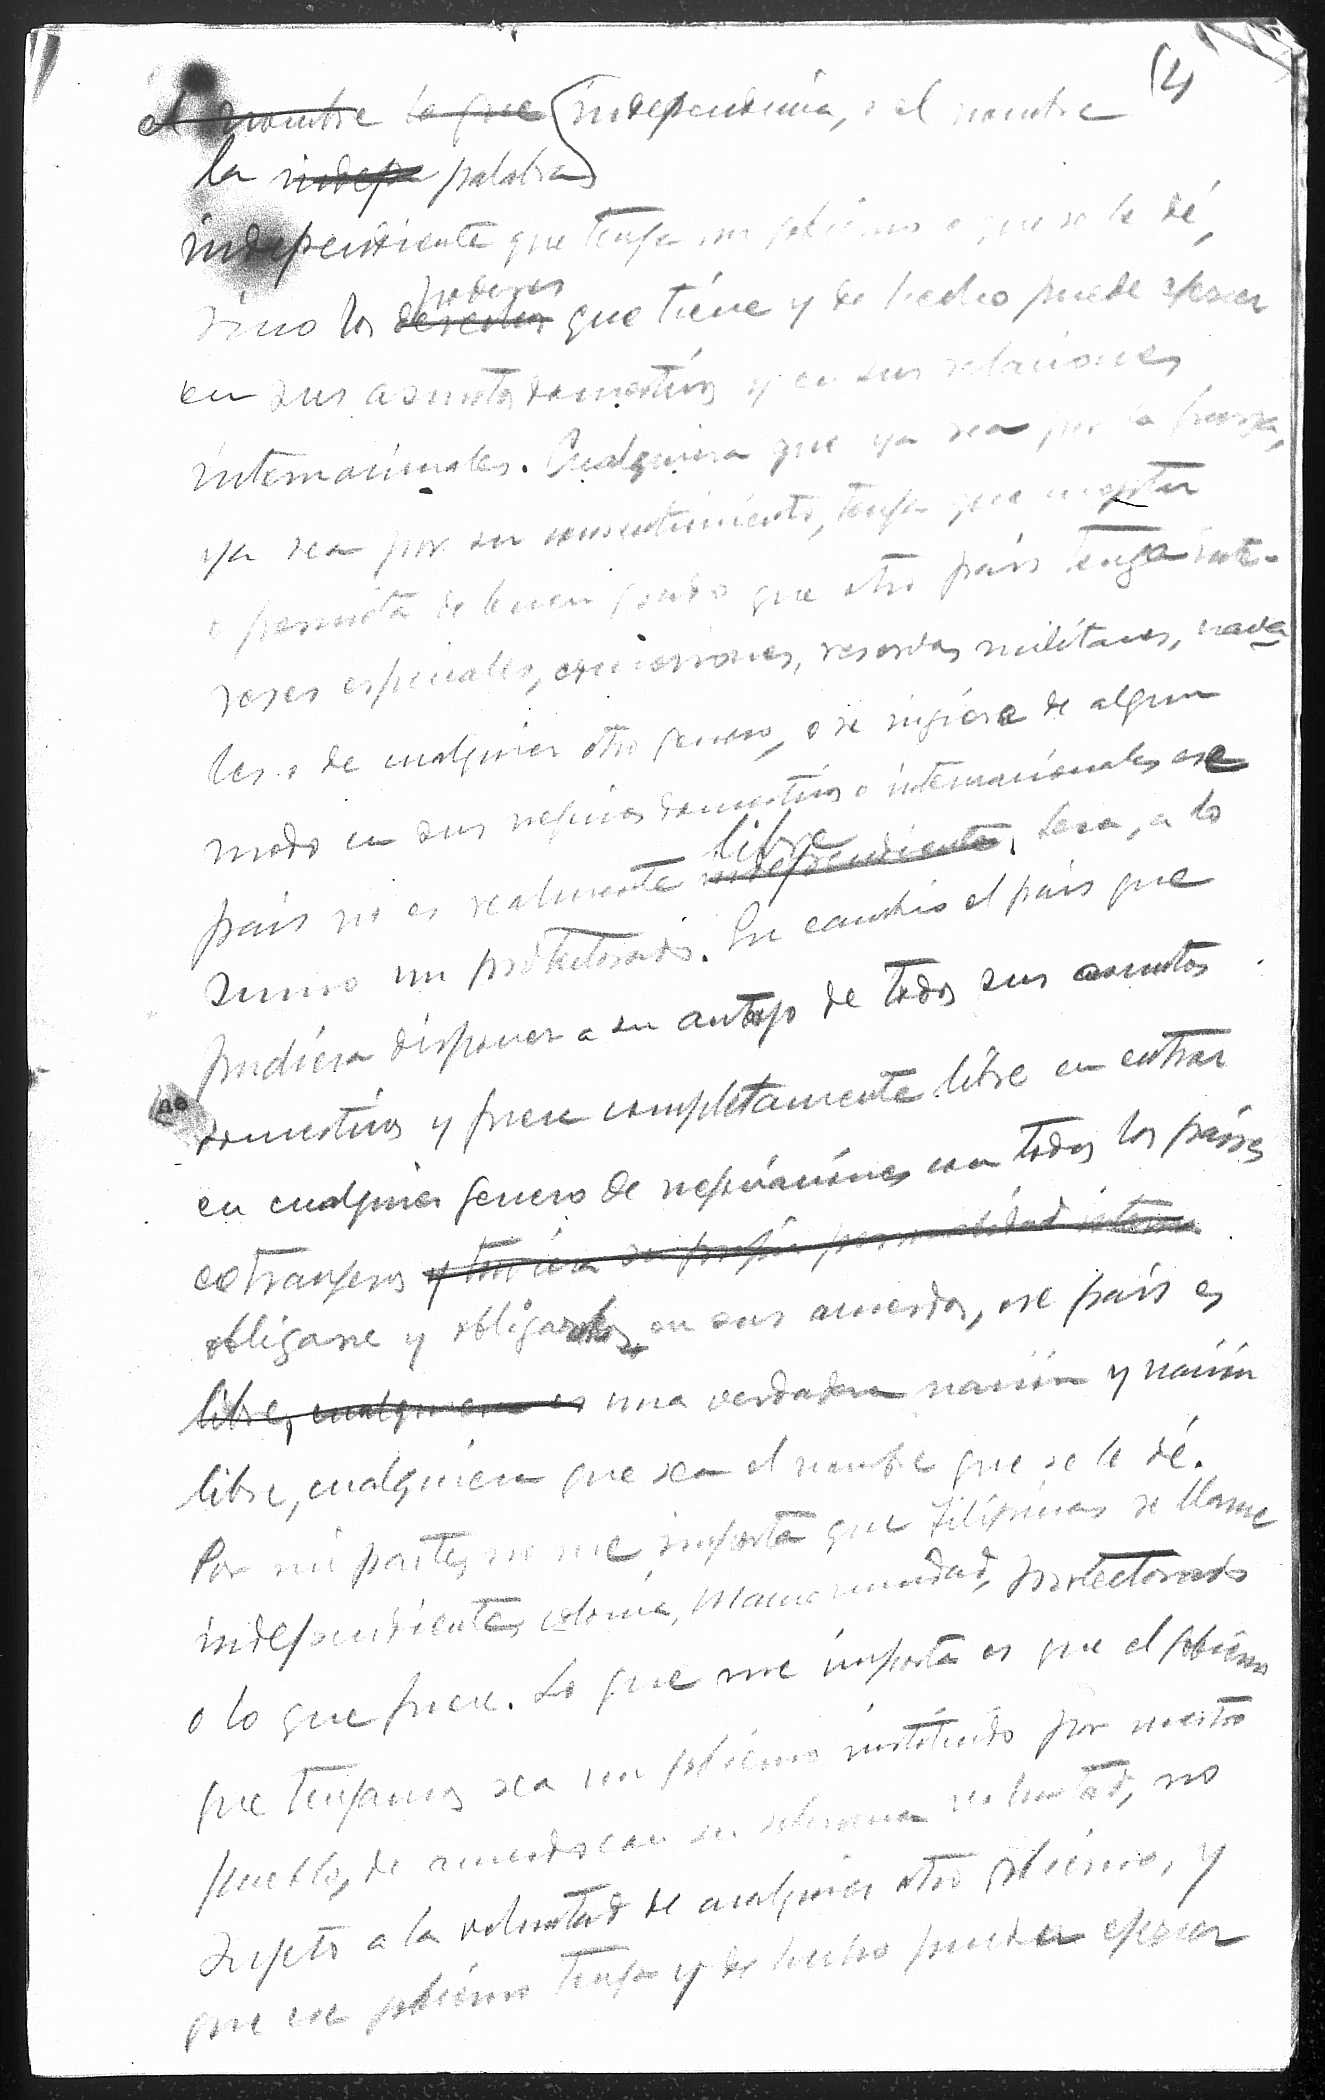 (4
el nombre lo que (independencia, o el nombre
la indepe palabra)
independiente que tenga un gobierno o que se le dé,
poderes
sino los derechos que tiene y de hecho puede ejercer
en sus asuntos domesticos y en sus relaciones
internacionales. Cualquiera que ya sea por la fuerza,
ya sea por su consentimiento, tenga que aceptar
o permita de buen grado que otro pais tenga inte-
reses especiales, concesiones, reservas militares, nava
les o de cualquier otro genero, o se ingiera de algun
modo en sus negocios domesticos o internacionales ese
libre
pais no es realmente independiente. Sera, a lo
sumo un protectorado. En cambio el pais que
pudiera disponer a su antojo de todos sus asuntos
domesticos y fuere completamente libre en entrar
en cualquier genero de negociaciones con todos los paises
extrangeros y tuviera su propia personalidad interna
obligarse y obligarlos en sus acuerdos, ese pais es
libre, cualquiera es una verdadera nación y nación
libre, cualquiera que sea el nombre que se le dé.
Por mi parte, no me importa que Filipinas se llame
independiente, colonia, Mancomunidad, protectorado
o lo que fuere. Lo que me importa es que el gobierno
que tengamos sea un gobierno instituido por nuestro
pueblo, de acuerdo con su soberana voluntad, no
sujeto a la voluntad de cualquier otro gobierno, y
que ese gobierno tenga y de hecho pueda ejercer